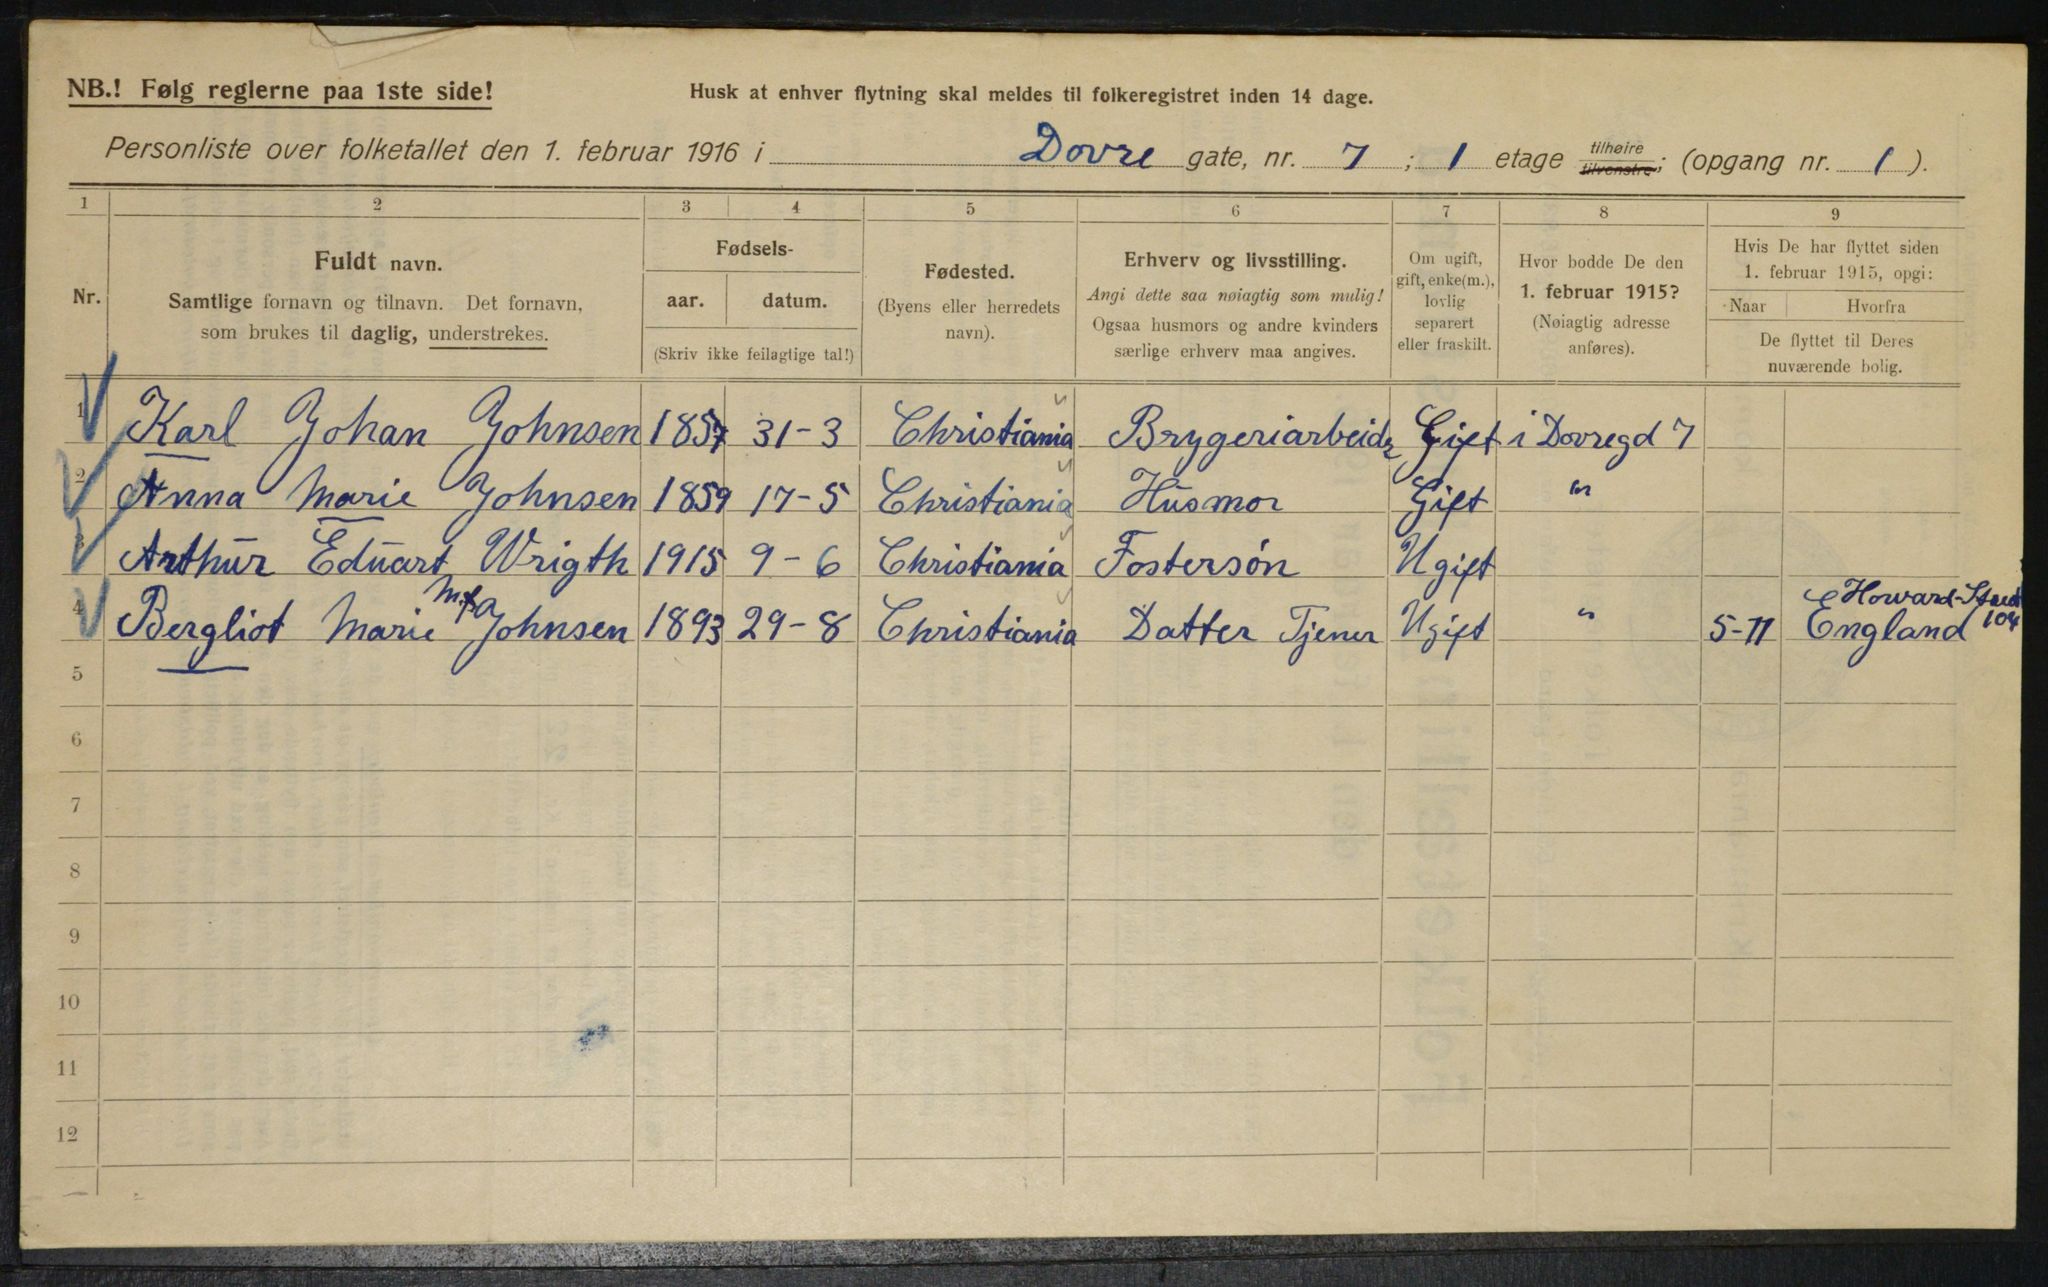 NB.! Følg reglerne paa 1ste side!
Husk at enhver flytning skal meldes til folkeregistret inden 14 dage.
Personliste over folketallet den 1. februar 1916 i Dovre gate, nr. 7; 1 etage tilhøire tilvenstre; (opgang nr. 1).
1 2 3 4 5 6 7 8 9
Nr.
Fuldt navn.
Samtlige fornavn og tilnavn. Det fornavn,
som brukes til daglig, understrekes.
Fødsels-
aar. datum.
(Skriv ikke feilagtige tal!)
Fødested.
(Byens eller herredets
navn).
Erhverv og livsstilling.
Angi dette saa nøiagtig som mulig!
Ogsaa husmors og andre kvinders
særlige erhverv maa angives.
Om ugift,
gift, enke(m.),
lovlig
separert
eller fraskilt.
Hvor bodde De den
1. februar 1915?
(Nøiagtig adresse
anføres).
Hvis De har flyttet siden
1. februar 1915, opgi:
Naar Hvorfra
De flyttet til Deres
nuværende bolig.
1 Karl Johan Johnsen 1857 31-3 Christiania Brygeriarbeider Gift i Dovregd 7
2 Anna Marie Johnsen 1859 17-5 Christiania Husmor Gift "
3 Arthur Eduart Wrigth 1915 9-6 Christiania Fostersøn Ugift
4 Bergliot Marie Johnsen 1893 29-8 Christiania Datter Tjener Ugift " 5-11 England Howard-Street 104
5
6
7
8
9
10
11
12